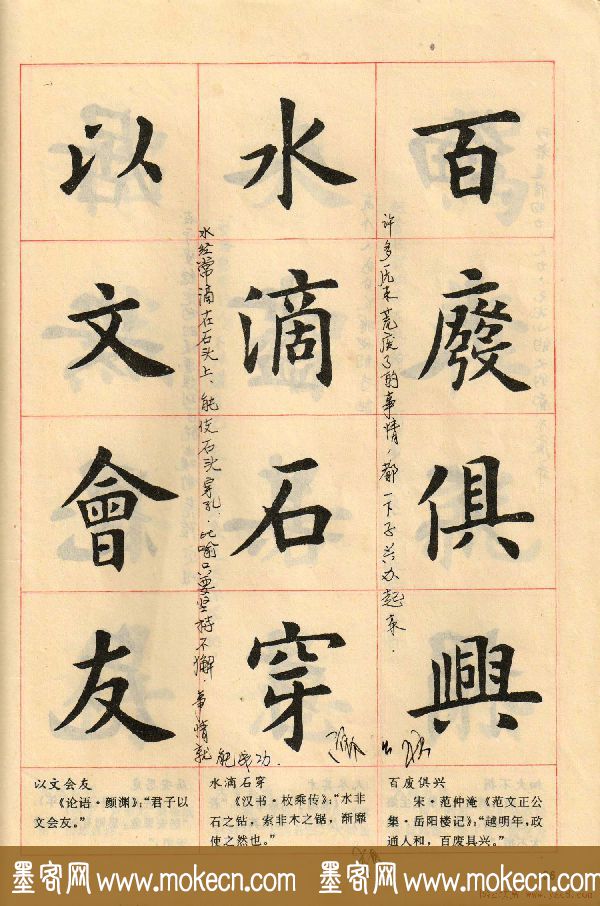 百廢俱興
许多一比来荒废了的事情，都一下子兴办起来．
水滴石穿
水经常滴在石头上、能使石头穿孔．比喻只要坚持不懈．事情就
能成功．
以文會友
以文会友
《论语·颜渊》：“君子以
文会友。”
水滴石穿
《汉书·枚乘传》：“水非
石之钻，索非木之锯，渐靡
使之然也。”
百废俱兴
宋·范仲淹《范文正公
集·岳阳楼记》：“越明年，政
通人和，百废具兴。”
墨客网 www.mokecn.com 墨客网 www.mokecn.com